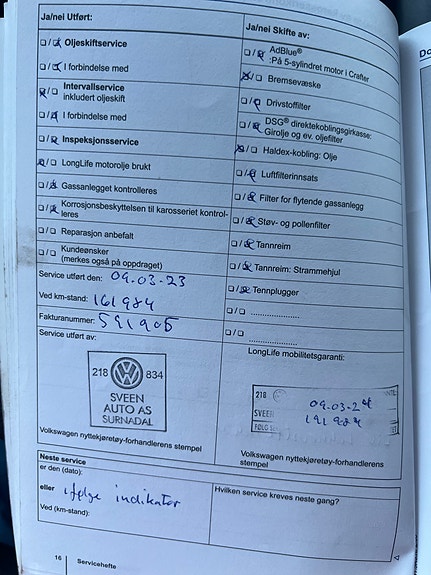 Ja/nei Utført:
□/□ Oljeskiftservice
□/□ I forbindelse med
□/□ Intervallservice
inkludert oljeskift
□/□ I forbindelse med
□/□ Inspeksjonsservice
□/□ LongLife motorolje brukt
□/□ Gassanlegget kontrolleres
□/□ Korrosjonsbeskyttelsen til karosseriet kontrol-
leres
□/□ Reparasjon anbefalt
□/□ Kundeønsker
(merkes også på oppdraget)
Service utført den: 09.03-23
Ved km-stand: 161984
Fakturanummer: 591905
Service utført av:
218 834
SVEEN
AUTO AS
SURNADAL
Volkswagen nyttekjøretøy-forhandlerens
stempel
Ja/nei Skifte av:
□/□ AdBlue®
:På 5-sylindret motor i Crafter
□/□ Bremsevæske
□/□ Drivstoffilter
□/□ DSG® direktekoblingsgirkasse:
Girolje og ev. oljefilter
□/□ Haldex-kobling: Olje
□/□ Luftfilterinnsats
□/□ Filter for flytende gassanlegg
□/□ Støv- og pollenfilter
□/□ Tannreim
□/□ Tannreim: Strammehjul
□/□ Tennplugger
□/□ ....................
□/□ ....................
LongLife mobilitetsgaranti:
218
09.03-24
SVEEN
191984
Volkswagen nyttekjøretøy-forhandlerens
stempel
Neste service
er den (dato):
eller ifølge indikator
Ved (km-stand):
Hvilken service kreves neste gang?
16 Servicehefte